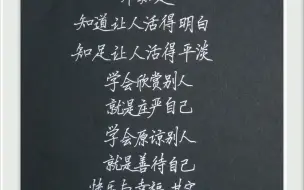 知道让人活得明白
知足让人活得平淡
学会欣赏别人
就是庄严自己
学会原谅别人
就是善待自己